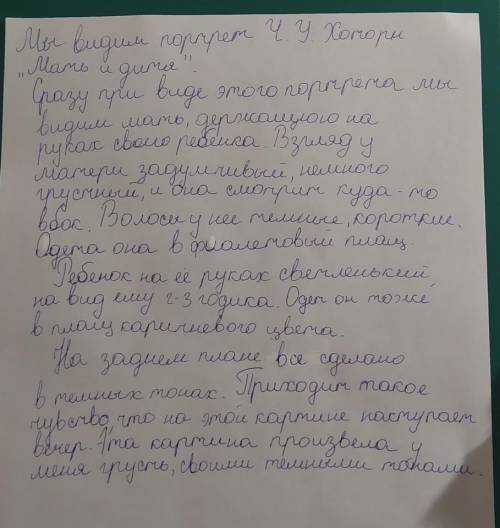 Мы видим портрет Ч. У. Хоторн
"Мать и дитя".
Сразу при виде этого портрета мы
видим мать, держащую на
руках своего ребенка. Взгляд у
матери задумчивый, немного
грустный, и она смотрит куда-то
вбок. Волосы у нее темные, короткие.
Одета она в фиолетовый плащ.
Ребенок на её руках светленький,
на вид ему 2-3 годика. Одет он тоже
в плащ каричневого цвета.
На заднем плане все сделано
в темных тонах. Приходит такое
чувство, что на этой картине наступает
вечер. Эта картина произвела у
меня грусть, своими темными тонами.